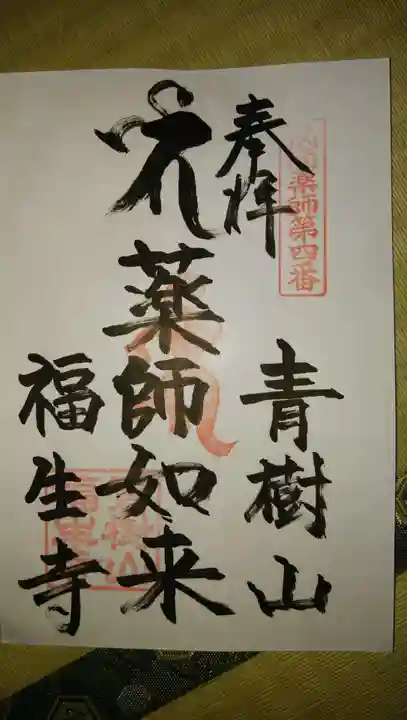 奉拝
薬師第四番
青樹山
薬師如来
福生寺